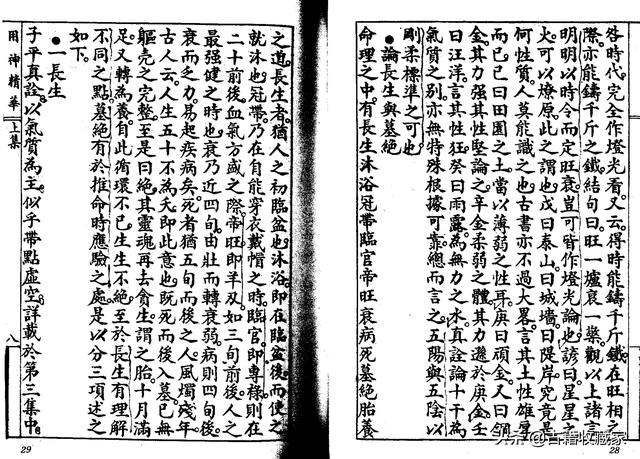 咎時代完全作燈光看又云得時能鑄千斤鐵在旺相之
際亦能鑄千斤之鐵結句曰旺一爐衰一樂觀以上諸言
明明以時令而定旺衰豈可皆作燈光論也諺曰星星之
火可以燎原此之謂也戊曰泰山曰城墻曰隄岸究竟是
何性質人莫能識之也古書亦不過大畧言其土性雄厚
而已己曰田園之土當以薄弱之性耳庚曰頑金又曰領
金其力强其性堅論之辛金柔弱之體其力遜於庚金壬
曰汪洋言其性狂癸曰雨露為無力之水真詮論十干為
氣質之別亦無特殊根據可靠總而言之五陽與五陰以
剛柔標準之可也
●論長生與墓絕
命理之中有長生沐浴冠帶臨官帝旺衰病死墓絕胎養
28
之道長生者猶人之初臨盆也沐浴即在臨盆後而使之
就沐也冠帶乃在自能穿衣戴帽之時臨官即專祿則在
二十前後血氣方盛之際帝旺即羊刃如三旬前後人之
最强健之時也衰乃近四旬由壯而轉衰弱病則四旬後
衰而乏力易起疾病矣死者猶五旬而後之人風燭殘年
古人云人生五十不為夭即此意也既死而後入墓已無
軀殼之完整至是曰絕其靈魂再去貪生謂之胎十月滿
足又轉為養自此循環不已生生不絕至於長生有理解
不同之點墓絕有於推命時應驗之處是以分三項述之
如下
●一長生
子平真詮以氣質為主似乎帶點虛空詳載於第三集中
用神精華 上集
八
29
头条 @古籍收藏家